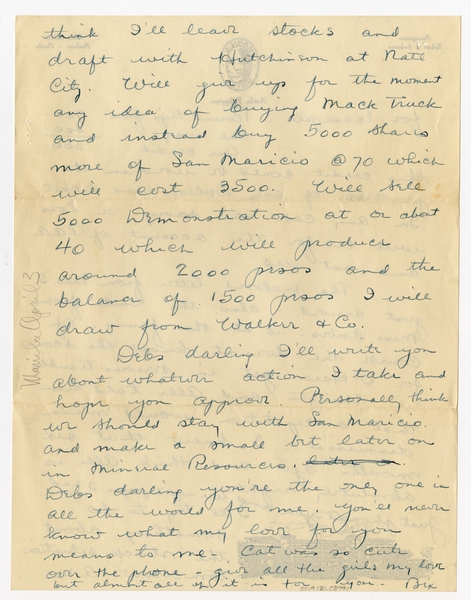 think I'll leave stocks and
draft with Hutchinson at Natl
City. Will give up for the moment
any idea of buying Mack Truck
and instead buy 5000 shares
more of San Maricio @ 70 which
will cost 3500. Will sell
5000 Demonstration at or about
40 which will produce
around 2000 pesos and the
balance of 1500 pesos I will
draw from Walker & Co.
Debs darling I'll write you
about whatever action I take and
hope you approve. Personally think
we should stay with San Maricio
and make a small bet later on
in Mineral Resources. later on
Debs darling you're the only one in
all the world for me. You'll never
know what my love for you
means to me - Cat was so cute
over the phone - give all the girls my love
but almost all of it is for you - Bix
Manila April 3